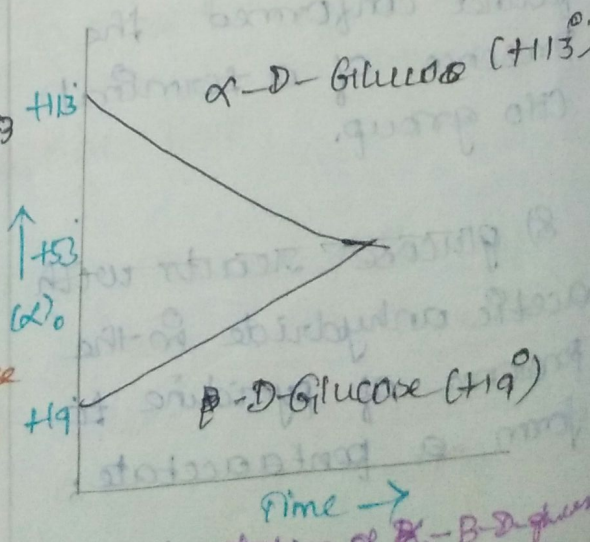 α-D-Glucose (+113°)
+113°
+53°
(α)₀
β-D-Glucose (+19°)
+19°
Time →